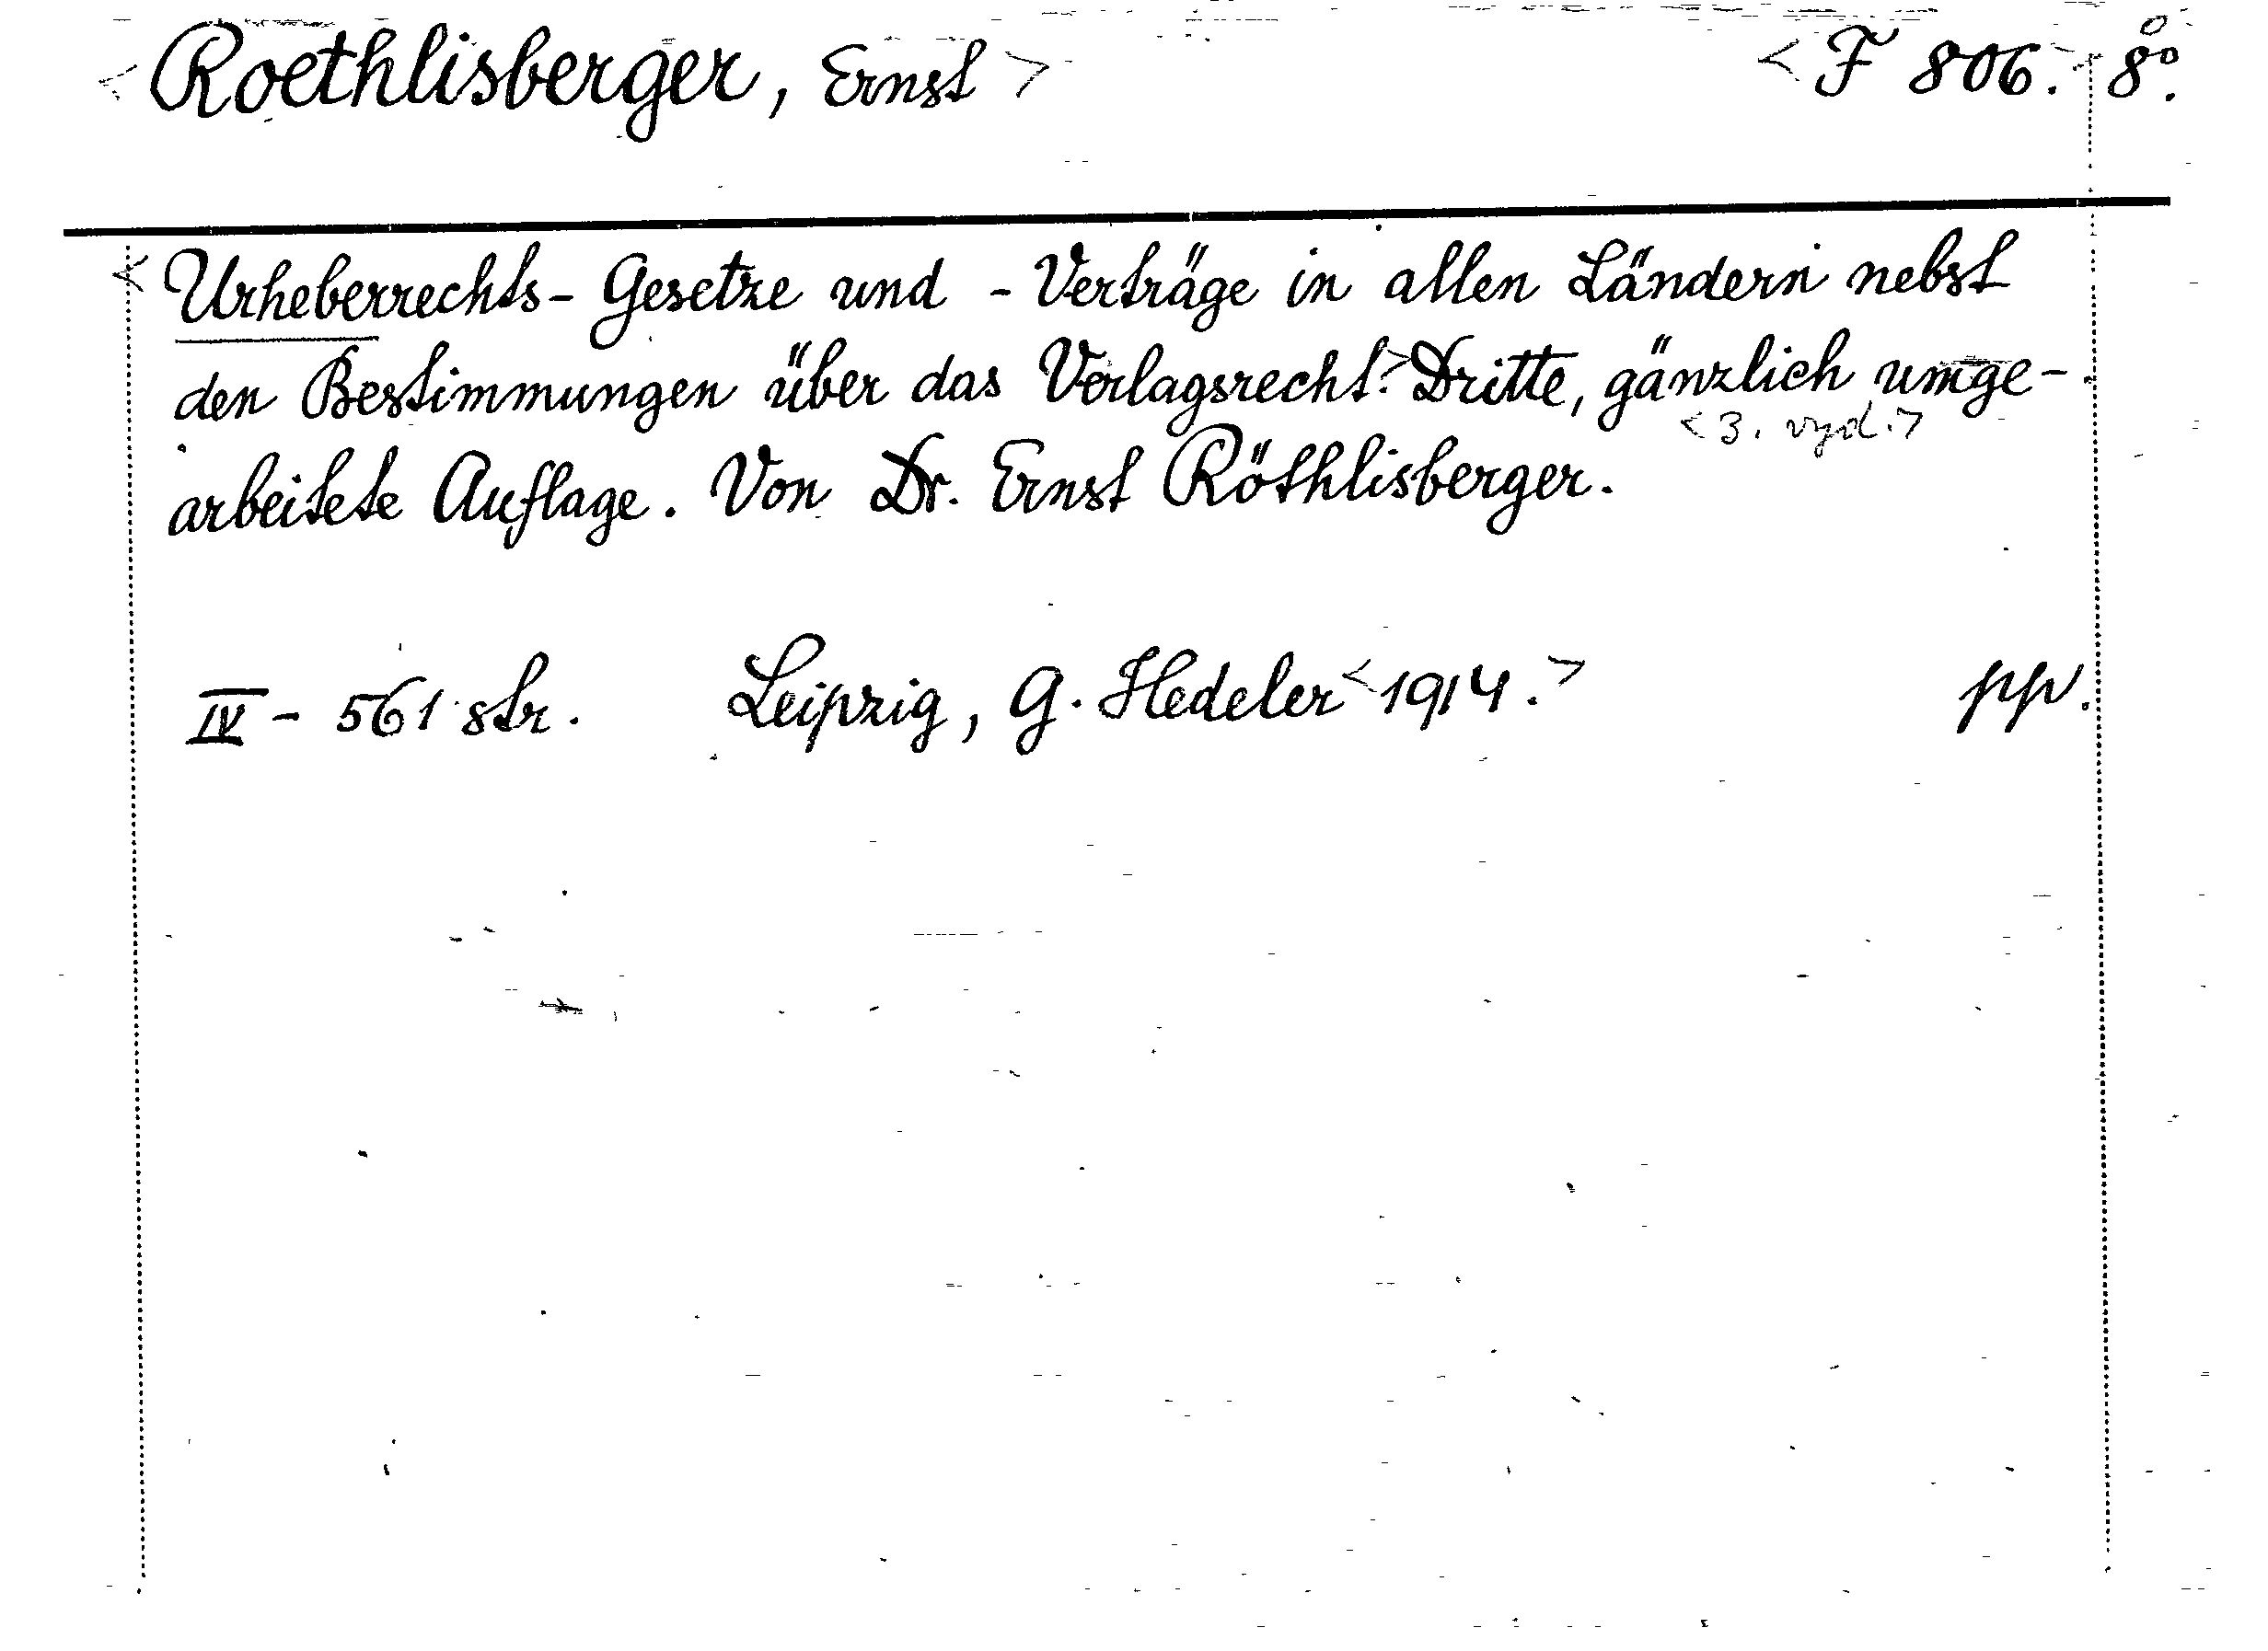 <Roethlisberger, Ernst> <F 806.> 8°.
<Urheberrechts-Gesetze und -Verträge in allen Ländern nebst
den Bestimmungen über das Verlagsrecht.> Dritte, gänzlich umge-
<3. vyd.>
arbeitete Auflage. Von Dr. Ernst Röthlisberger.
IV - 561 str. Leipzig, G. Hedeler <1914.> ppv.